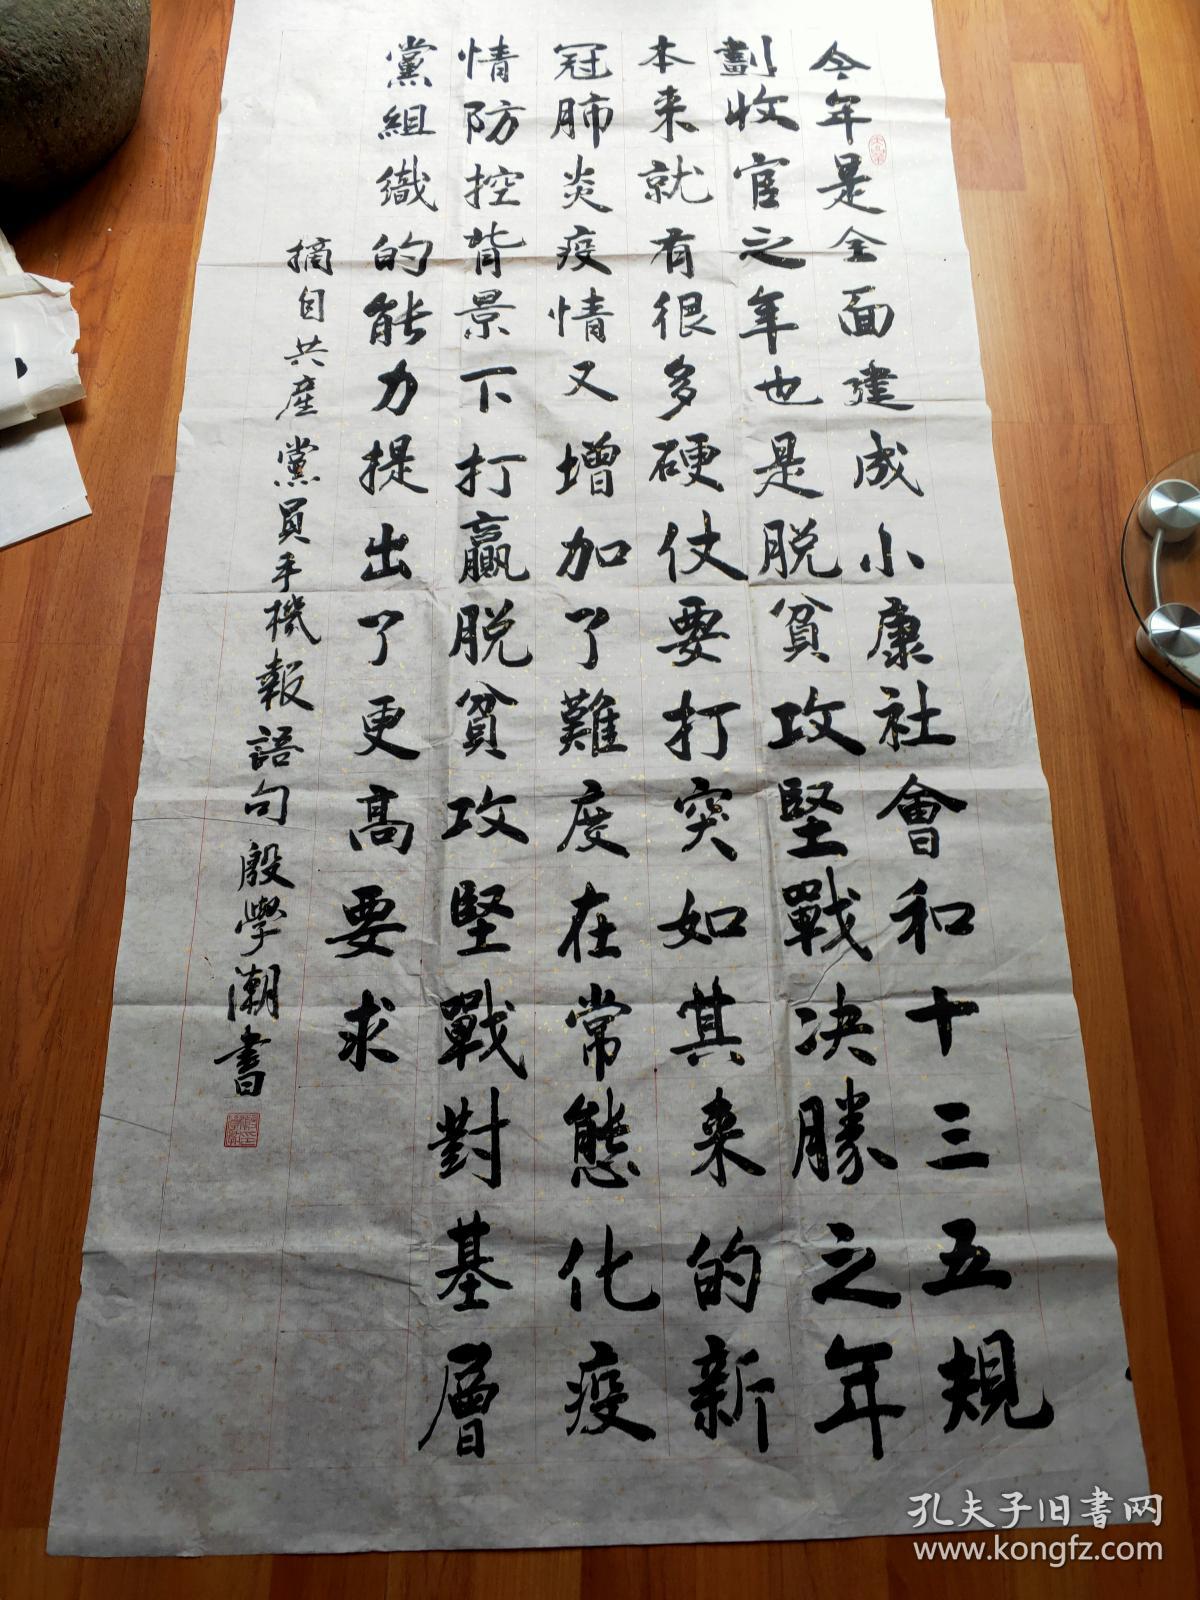 今年是全面建成小康社會和十三五規
劃收官之年也是脱貧攻堅戰决勝之年
本来就有很多硬仗要打突如其来的新
冠肺炎疫情又增加了難度在常態化疫
情防控背景下打贏脱貧攻堅戰對基層
黨組織的能力提出了更高要求
摘自共産黨員手機報語句殷學潮書
孔夫子旧書网
www.kongfz.com